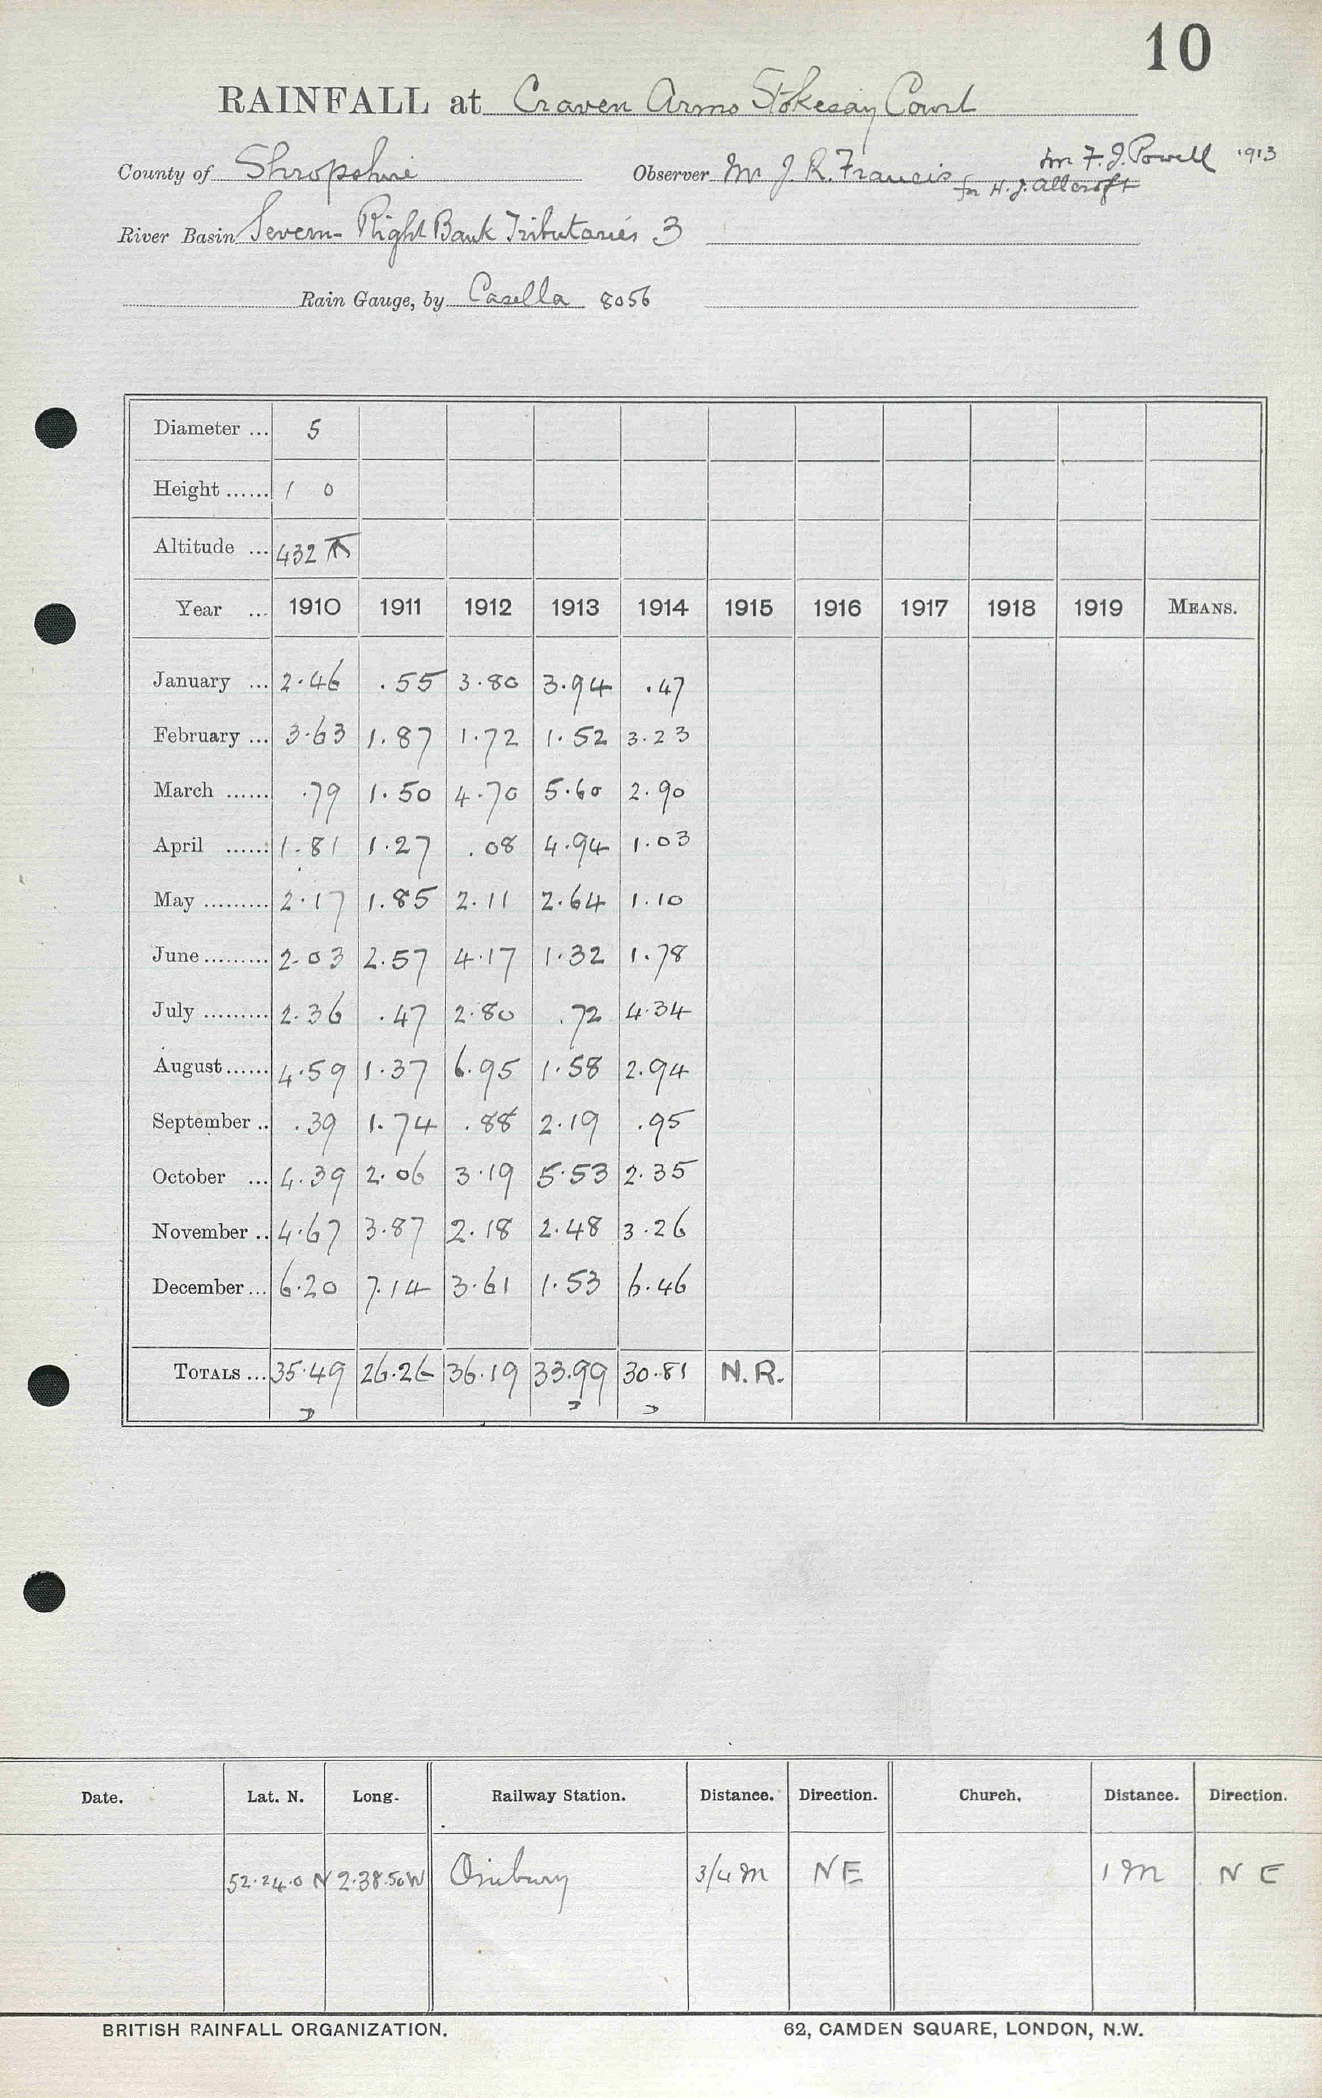 10
RAINFALL at Craven Arms Stokesay Court
County of Shropshire Observer Mr J. R. Francis Mr F. J. Powell 1913
for H. J. Allcroft
River Basin Severn - Right Bank Tributaries 3
Rain Gauge, by Casella 8056
Diameter ... 5
Height ...... 1 0
Altitude ... 432
Year ... 1910 1911 1912 1913 1914 1915 1916 1917 1918 1919 MEANS.
January ... 2.46 .55 3.80 3.94 .47
February ... 3.63 1.87 1.72 1.52 3.23
March ...... .79 1.50 4.70 5.60 2.90
April ...... 1.81 1.27 .08 4.94 1.03
May ......... 2.17 1.85 2.11 2.64 1.10
June ......... 2.03 2.57 4.17 1.32 1.78
July ......... 2.36 .47 2.80 .72 4.34
August ...... 4.59 1.37 6.95 1.58 2.94
September .. .39 1.74 .88 2.19 .95
October ... 4.39 2.06 3.19 5.53 2.35
November .. 4.67 3.87 2.18 2.48 3.26
December ... 6.20 7.14 3.61 1.53 6.46
TOTALS ... 35.49 26.26 36.19 33.99 30.81 N.R.
Date. Lat. N. Long. Railway Station. Distance. Direction. Church. Distance. Direction.
52.24.0 N 2.38.50 W Onibury 3/4 m NE 1 m N E
BRITISH RAINFALL ORGANIZATION. 62, CAMDEN SQUARE, LONDON, N.W.